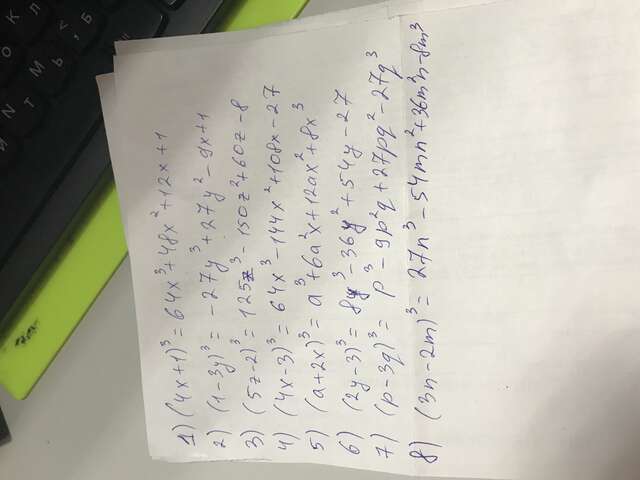 1) (4x+1)³ = 64x³+48x²+12x+1
2) (1-3y)³ = -27y³+27y²-9x+1
3) (5z-2)³ = 125z³-150z²+60z-8
4) (4x-3)³ = 64x³-144x²+108x-27
5) (a+2x)³ = a³+6a²x+12ax²+8x³
6) (2y-3)³ = 8y³-36y²+54y-27
7) (p-3q)³ = p³-9p²q+27pq²-27q³
8) (3n-2m)³ = 27n³-54mn²+36m²n-8m³